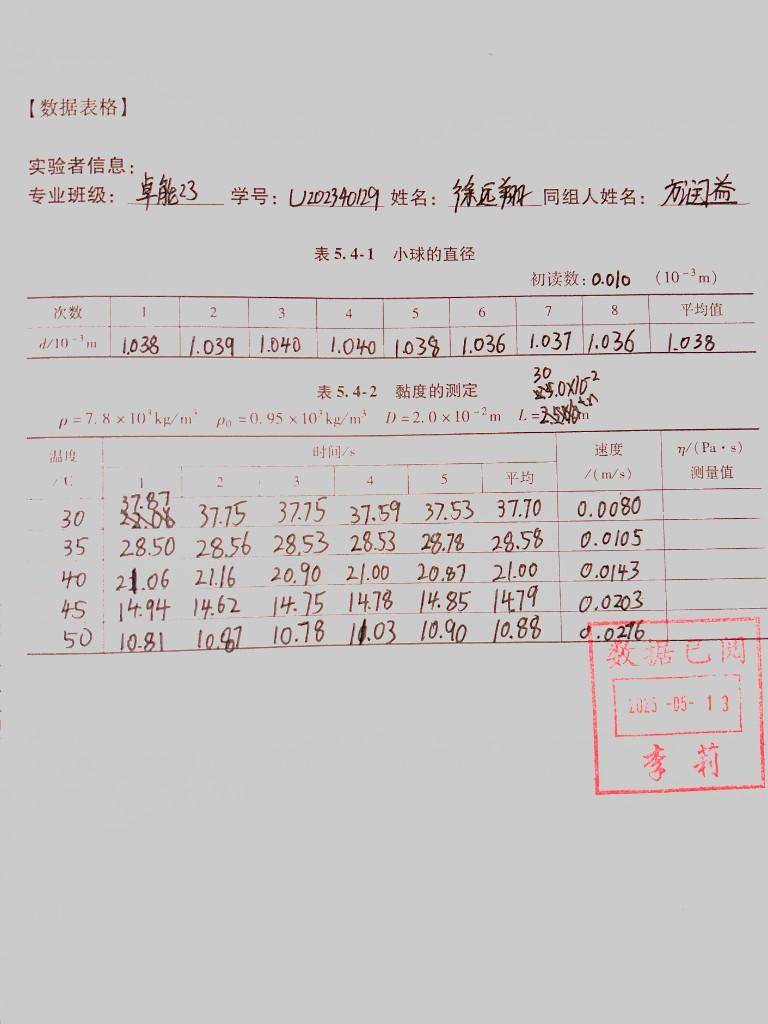 【数据表格】
实验者信息：
专业班级： 卓能23 学号： U202340129 姓名： 徐远翔 同组人姓名： 方闰益
表 5.4-1 小球的直径
初读数： 0.010 （10⁻³m）
次数 1 2 3 4 5 6 7 8 平均值
d/10⁻³m 1.038 1.039 1.040 1.040 1.038 1.036 1.037 1.036 1.038
表 5.4-2 黏度的测定
30.0×10⁻²m
ρ=7.8×10³kg/m³ ρ₀=0.95×10³kg/m³ D=2.0×10⁻²m L=
温度 时间/s 速度 η/(Pa·s)
/℃ 1 2 3 4 5 平均 /(m/s) 测量值
30 37.87 37.75 37.75 37.59 37.53 37.70 0.0080
35 28.50 28.56 28.53 28.53 28.78 28.58 0.0105
40 21.06 21.16 20.90 21.00 20.87 21.00 0.0143
45 14.94 14.62 14.75 14.78 14.85 14.79 0.0203
50 10.81 10.87 10.78 11.03 10.90 10.88 0.0276
数据已阅
2025-05-13
李莉